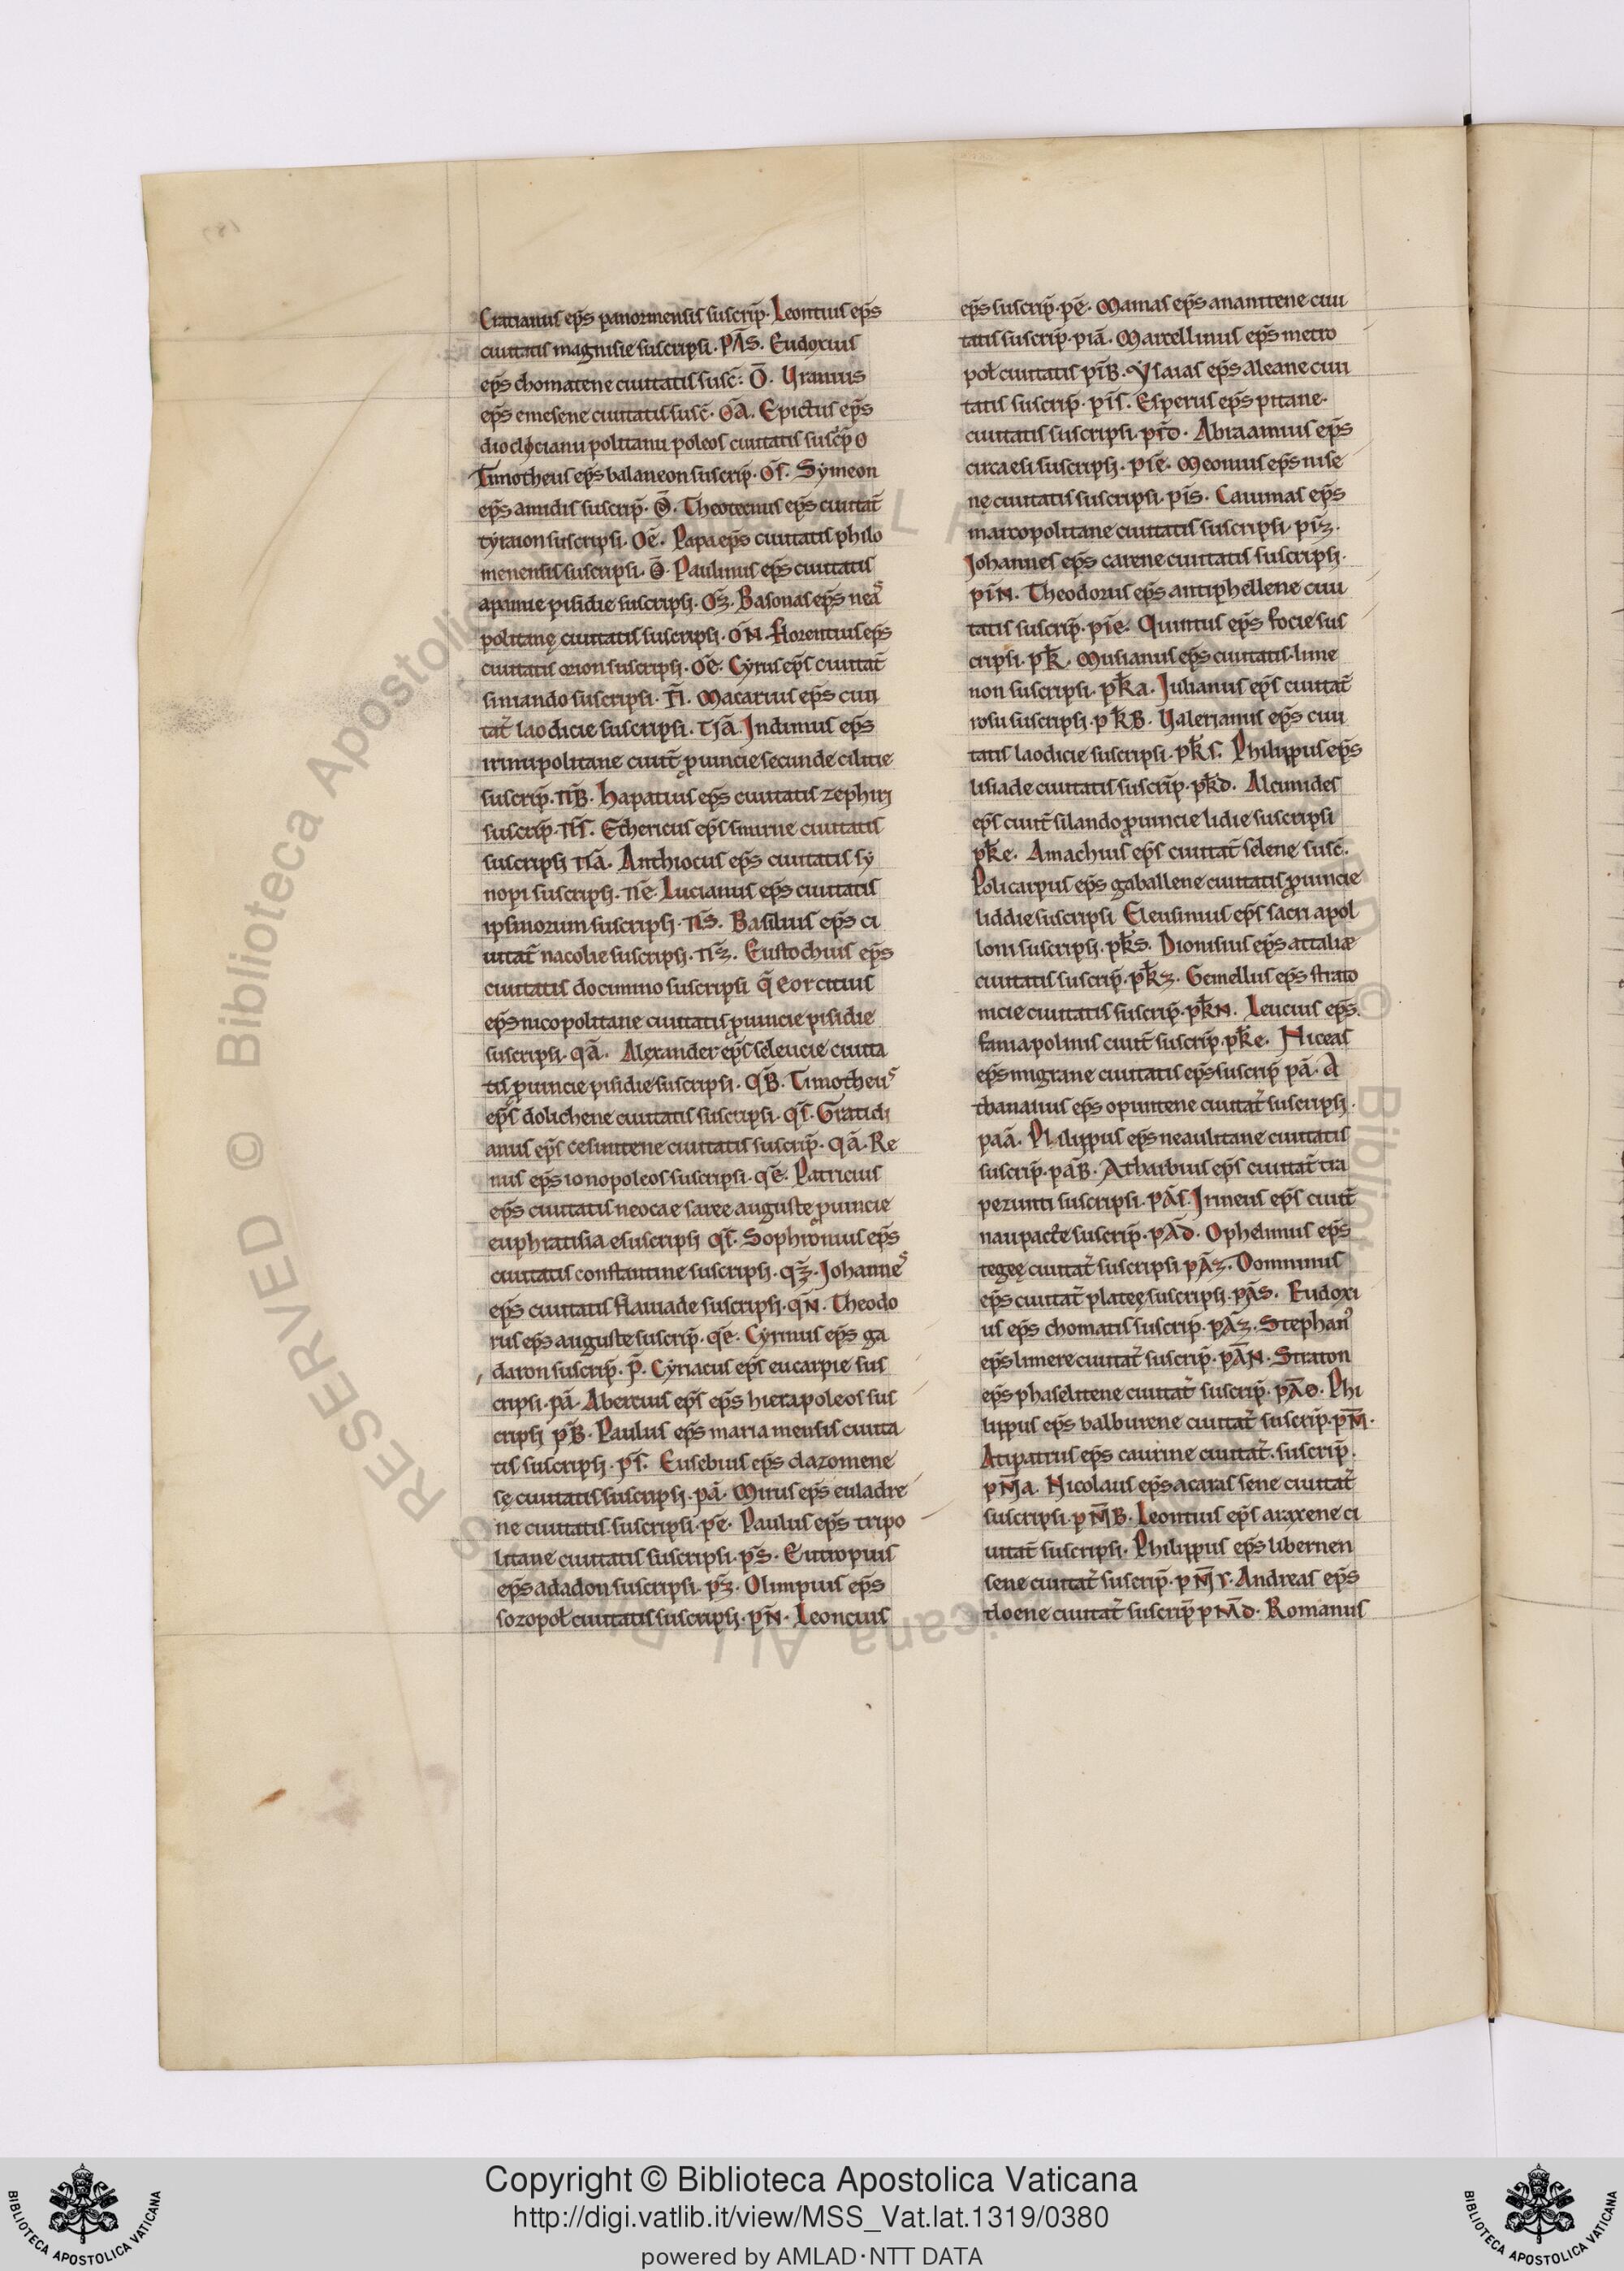 Cratianus ep̄s panormensis suscrip̄. Leontius ep̄s
ciuitatis magnisie suscripsi. PĀS. Eudoxius
ep̄s chomatene ciuitatis susc̄. Ō. Uranius
ep̄s emesene ciuitatis susc̄. OĀ. Epictus ep̄s
dioclicianu politanu poleos ciuitatis suscp̄ O
Timotheus ep̄s balaneon suscrip̄. Os̄. Symeon
ep̄s amidis suscrip̄. Theotecnus ep̄s ciuitat̄
tyraion suscripsi. Oē. Papa ep̄s ciuitatis philo
menensis suscripsi. Paulinus ep̄s ciuitatis
apamie pisidie suscripsi. Oz̄. Basonas ep̄s nea
politanę ciuitatis suscripsi. ON̄. florentius ep̄s
ciuitatis orion suscripsi. Oē. Cyrus ep̄s ciuitat̄
siniando suscripsi. Macarius ep̄s ciui
tat̄ laodicie suscripsi. Indimus ep̄s
irinupolitane ciuit̄ ꝓuincie secunde cilicie
suscrip̄. πB̄. hapatius ep̄s ciuitatis zephiri
suscrip̄. πs̄. Ethericus ep̄s smirne ciuitatis
suscripsi πā. Anthiocus ep̄s ciuitatis sy
nopi suscripsi. πē. Lucianus ep̄s ciuitatis
ipsinorum suscripsi. πS̄. Basilius ep̄s ci
uitat̄ nacolie suscripsi. πz̄. Eustochius ep̄s
ciuitatis documno suscripsi q̄ eorcitius
ep̄s nicopolitane ciuitatis ꝓuincie pisidie
suscripsi. qā. Alexander ep̄s seleucie ciuita
tis ꝓuincie pisidie suscripsi. qB̄. Timotheus
ep̄s dolichene ciuitatis suscripsi. qs̄. Gratidi
anus ep̄s cesuntene ciuitatis suscrip̄. qā. Re
nus ep̄s ionopoleos suscripsi. qē. Patricius
ep̄s ciuitatis neocae saree auguste ꝓuincie
euphratisia e suscripsi qs̄. Sophronius ep̄s
ciuitatis constantine suscripsi. qz̄. Johannes
ep̄s ciuitatis flauiade suscripsi. qN̄. Theodo
rus ep̄s auguste suscrip̄. qē. Cyrinus ep̄s ga
daron suscrip̄. p̄. Cyriacus ep̄s eucarpie sus
cripsi. pā. Abercius ep̄s ep̄s hierapoleos sus
cripsi pB̄. Paulus ep̄s maria mensis ciuita
tis suscripsi. ps̄. Eusebius ep̄s clazomene
sę ciuitatis suscripsi. pā. Mirus ep̄s euladre
ne ciuitatis suscripsi. pē. Paulus ep̄s tripo
litane ciuitatis suscripsi. pS̄. Eutropius
ep̄s adadon suscripsi. pz̄. Olimpius ep̄s
sozopoł ciuitatis suscripsi. pN̄. Leoncius
ep̄s suscrip̄. pē. Mamas ep̄s ananitene ciui
tatis suscrip̄. piā. Marcellinus ep̄s metro
poł ciuitatis piB̄. Ysaias ep̄s aleane ciui
tatis suscrip̄. pis̄. Esperus ep̄s pitane.
ciuitatis suscripsi. pid̄. Abraamius ep̄s
circaesi suscripsi. piē. Meonius ep̄s nise
nę ciuitatis suscripsi. piS̄. Caiumas ep̄s
marcopolitane ciuitatis suscripsi. piz̄.
Johannes ep̄s carene ciuitatis suscripsi.
piN̄. Theodorus ep̄s antiphellene ciui
tatis suscrip̄. piē. Quintus ep̄s focie sus
cripsi. pk̄. Musianus ep̄s ciuitatis lime
non suscripsi. pk̄a. Julianus ep̄s ciuitat̄
rosu suscripsi. pk̄B. Ualerianus ep̄s ciui
tatis laodicie suscripsi. pk̄s. Philippus ep̄s
lisiade ciuitatis suscrip̄. pk̄d. Alcimides
ep̄s ciuit̄ silando ꝓuincie lidie suscripsi
pk̄e. Amachius ep̄s ciuitat̄ selene susc̄.
Policarpus ep̄s gaballene ciuitatis ꝓuincie
liddie suscripsi Eleusinius ep̄s sacri apol
loni suscripsi. pk̄S. Dionisius ep̄s attaliæ
ciuitatis suscrip̄. pk̄z. Gemellus ep̄s strato
nicie ciuitatis suscrip̄. pk̄N. Leucius ep̄s.
famapolinis ciuit̄ suscrip̄. pk̄e. Niceas
ep̄s migrane ciuitatis ep̄s suscrip̄ pā. A
thanasius ep̄s opuntene ciuitat̄ suscripsi.
paā. Philippus ep̄s neaulitane ciuitatis
suscrip̄. pāB. Atharbius ep̄s ciuitat̄ tra
pezunti suscripsi. pĀs. Irineus ep̄s ciuit̄
naupacte suscrip̄. pĀd. Ophelimus ep̄s
tegeę ciuitat̄ suscripsi pĀz. Domninus
ep̄s ciuitat̄ plateę suscripsi. pĀS. Eudoxi
us ep̄s chomatis suscrip. pĀz. Stephan9
ep̄s limere ciuitat̄ suscrip̄. pĀN. Straton
ep̄s phaselitene ciuitat̄ suscrip̄. pĀO. Phi
lippus ep̄s balburene ciuitat̄ suscrip̄. pM̄.
Atipatrus ep̄s caurine ciuitat̄. suscrip̄.
pM̄a. Nicolaus ep̄s acaras sene ciuitat̄
suscripsi. pM̄B. Leontius ep̄s araxene ci
uitat̄ suscripsi. Philippus ep̄s libernen
sene ciuitat̄ suscrip̄. pM̄r. Andreas ep̄s
tloene ciuitat̄ suscrip̄ pM̄d. Romanus
© Biblioteca Apostolica Vaticana ALL RIGHTS RESERVED
Copyright © Biblioteca Apostolica Vaticana
http://digi.vatlib.it/view/MSS_Vat.lat.1319/0380
powered by AMLAD·NTT DATA
BIBLIOTECA APOSTOLICA VATICANA
BIBLIOTECA APOSTOLICA VATICANA